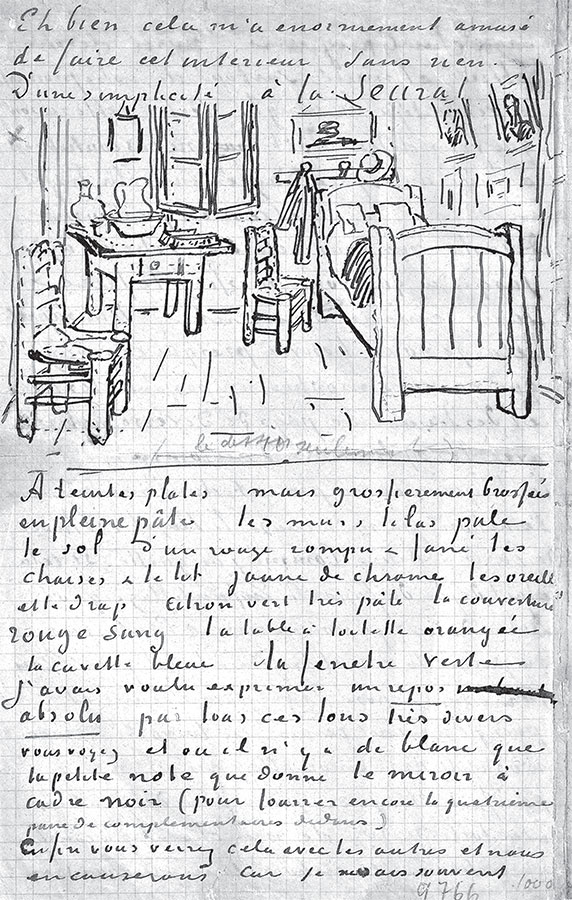 Eh bien cela m'a enormement amusé
de faire cet interieur sans rien.
D'une simplicité à la Seurat
(le dessin seulement)
A teintes plates mais grossierement brossées
en pleine pâte les murs lilas pale
le sol d'un rouge rompu & fané les
chaises & le lit jaune de chrome les oreillers
et le drap citron vert très pâle la couverture
rouge sang la table à toilette orangée
la cuvette bleue la fenetre verte
J'avais voulu exprimer un repos
absolu par tous ces tons très divers
vous voyez et où il n'y a de blanc que
la petite note que donne le miroir à
cadre noir (pour fourrer encore la quatrieme
paire de complementaires dedans)
Enfin vous verrez cela avec les autres et nous
en causerons car je ne sais souvent
9766 1000